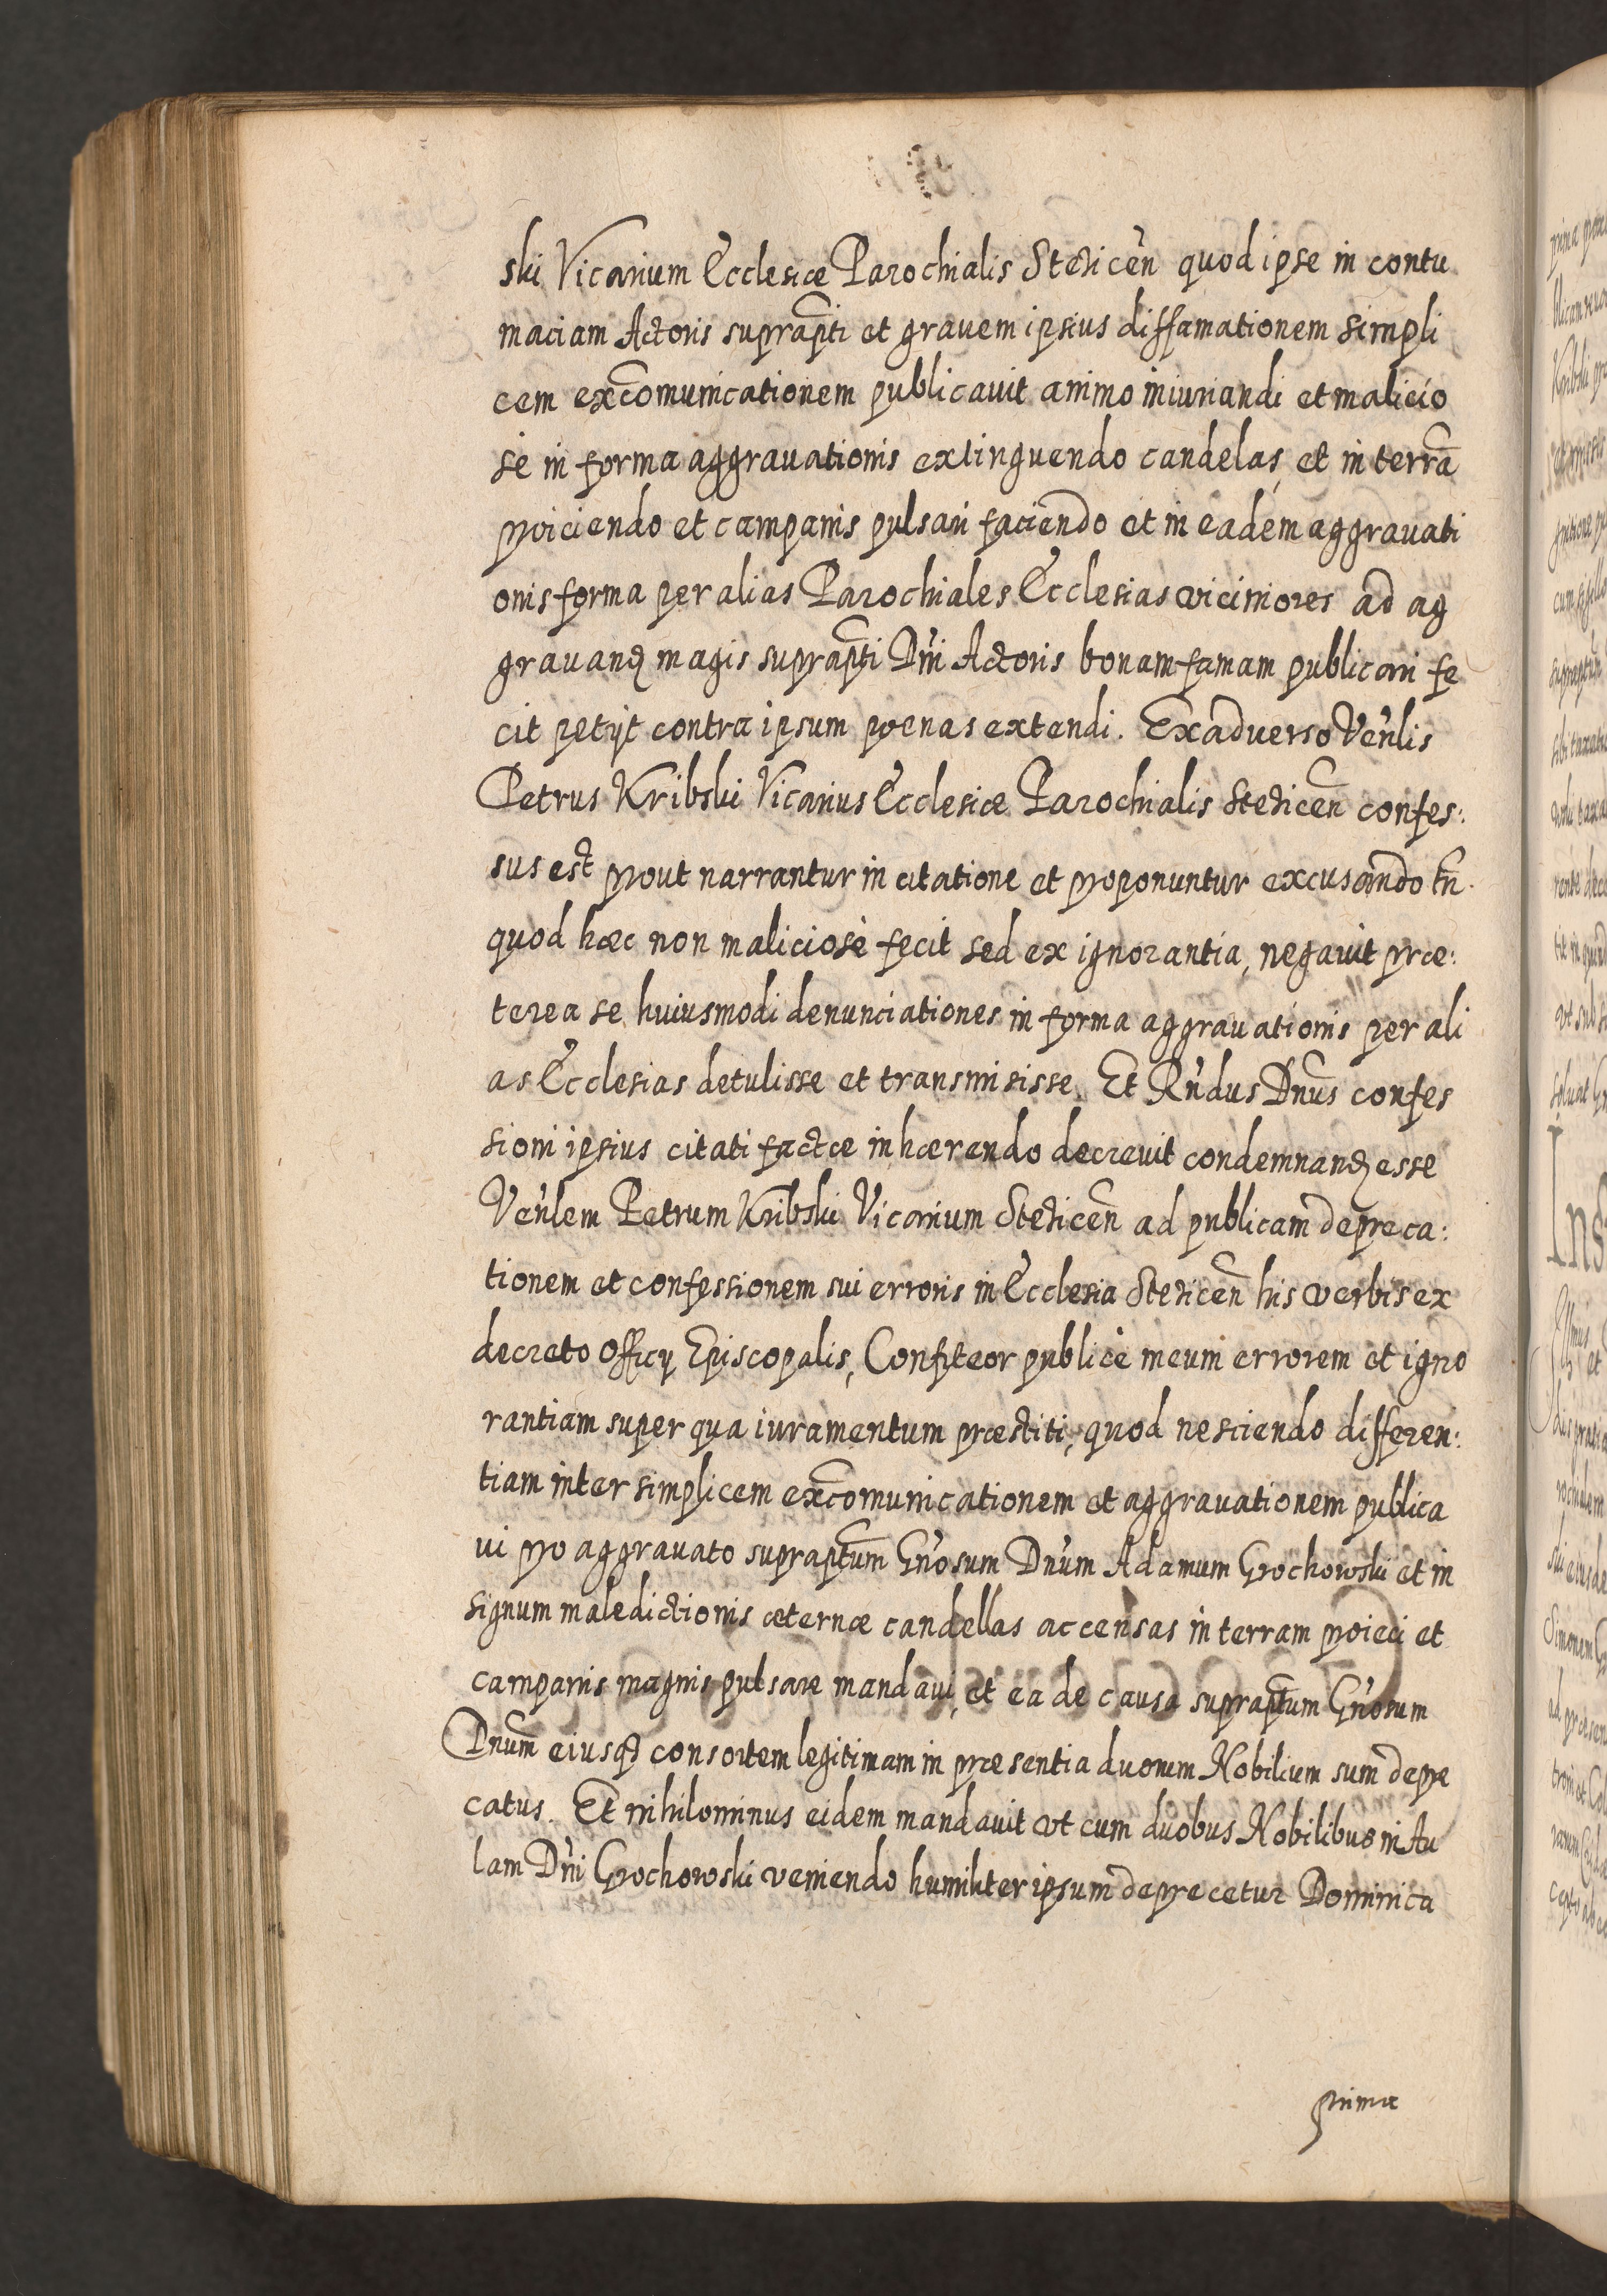 ski Vicarium Ecclesiæ Parochialis Stezicen̄ quod ipse in contu
maciam Actoris suprap̄ti et grauem ipsius diffamationem simpli
cem exc̄omunicationem publicauit animo iniuriandi et malicio
sè in forma aggrauationis extinguendo candelas, et in terrā
proiciendo et campanis pulsari faciendo et in eadem aggrauati
onis forma per alias Parochiales Ecclesias viciniores ad ag
grauanḍ magis suprap̄ti Dn̄i Actoris bonam famam publicari fe
cit petÿt contra ipsum poenas extendi. Ex aduerso Ven̄lis
Petrus Kribski Vicarius Ecclesiæ Parochialis Stezicen̄ confes:
sus est prout narrantur in citatione et proponuntur excusando tn̄.
quod hæc non maliciosè fecit sed ex ignorantia, negauit præ:
terea se huiusmodi denunciationes in forma aggrauationis per ali
as Ecclesias detulisse et transmisisse. Et Rn̄dus Dnūs confes
sioni ipsius citati factæ inhærendo decreuit condemnanḍ esse
Ven̄lem Petrum Kribski Vicarium Stezicen̄ ad publicam depreca:
tionem et confessionem sui erroris in Ecclesia Stezicen̄ his verbis ex
decreto Officÿ Episcopalis, Confiteor publicè meum errorem et igno
rantiam super qua iuramentum præstiti, quod nesciendo differen:
tiam inter simplicem exc̄omunicationem et aggrauationem publica
ui pro aggrauato suprap̄tum Gn̄osum Dn̄um Adamum Grochowski et in
signum maledictionis æternæ candellas accensas in terram proieci et
campanis magnis pulsare mandaui, et ea de causa suprap̄tum Gn̄osum
Dnūm eiusq̄ consortem legitimam in præsentia duorum Nobilium sum depre
catus. Et nihilominus eidem mandauit vt cum duobus Nobilibus in Au
lam Dn̄i Grochowski veniendo humiliter ipsum deprecetur Dominica
prima